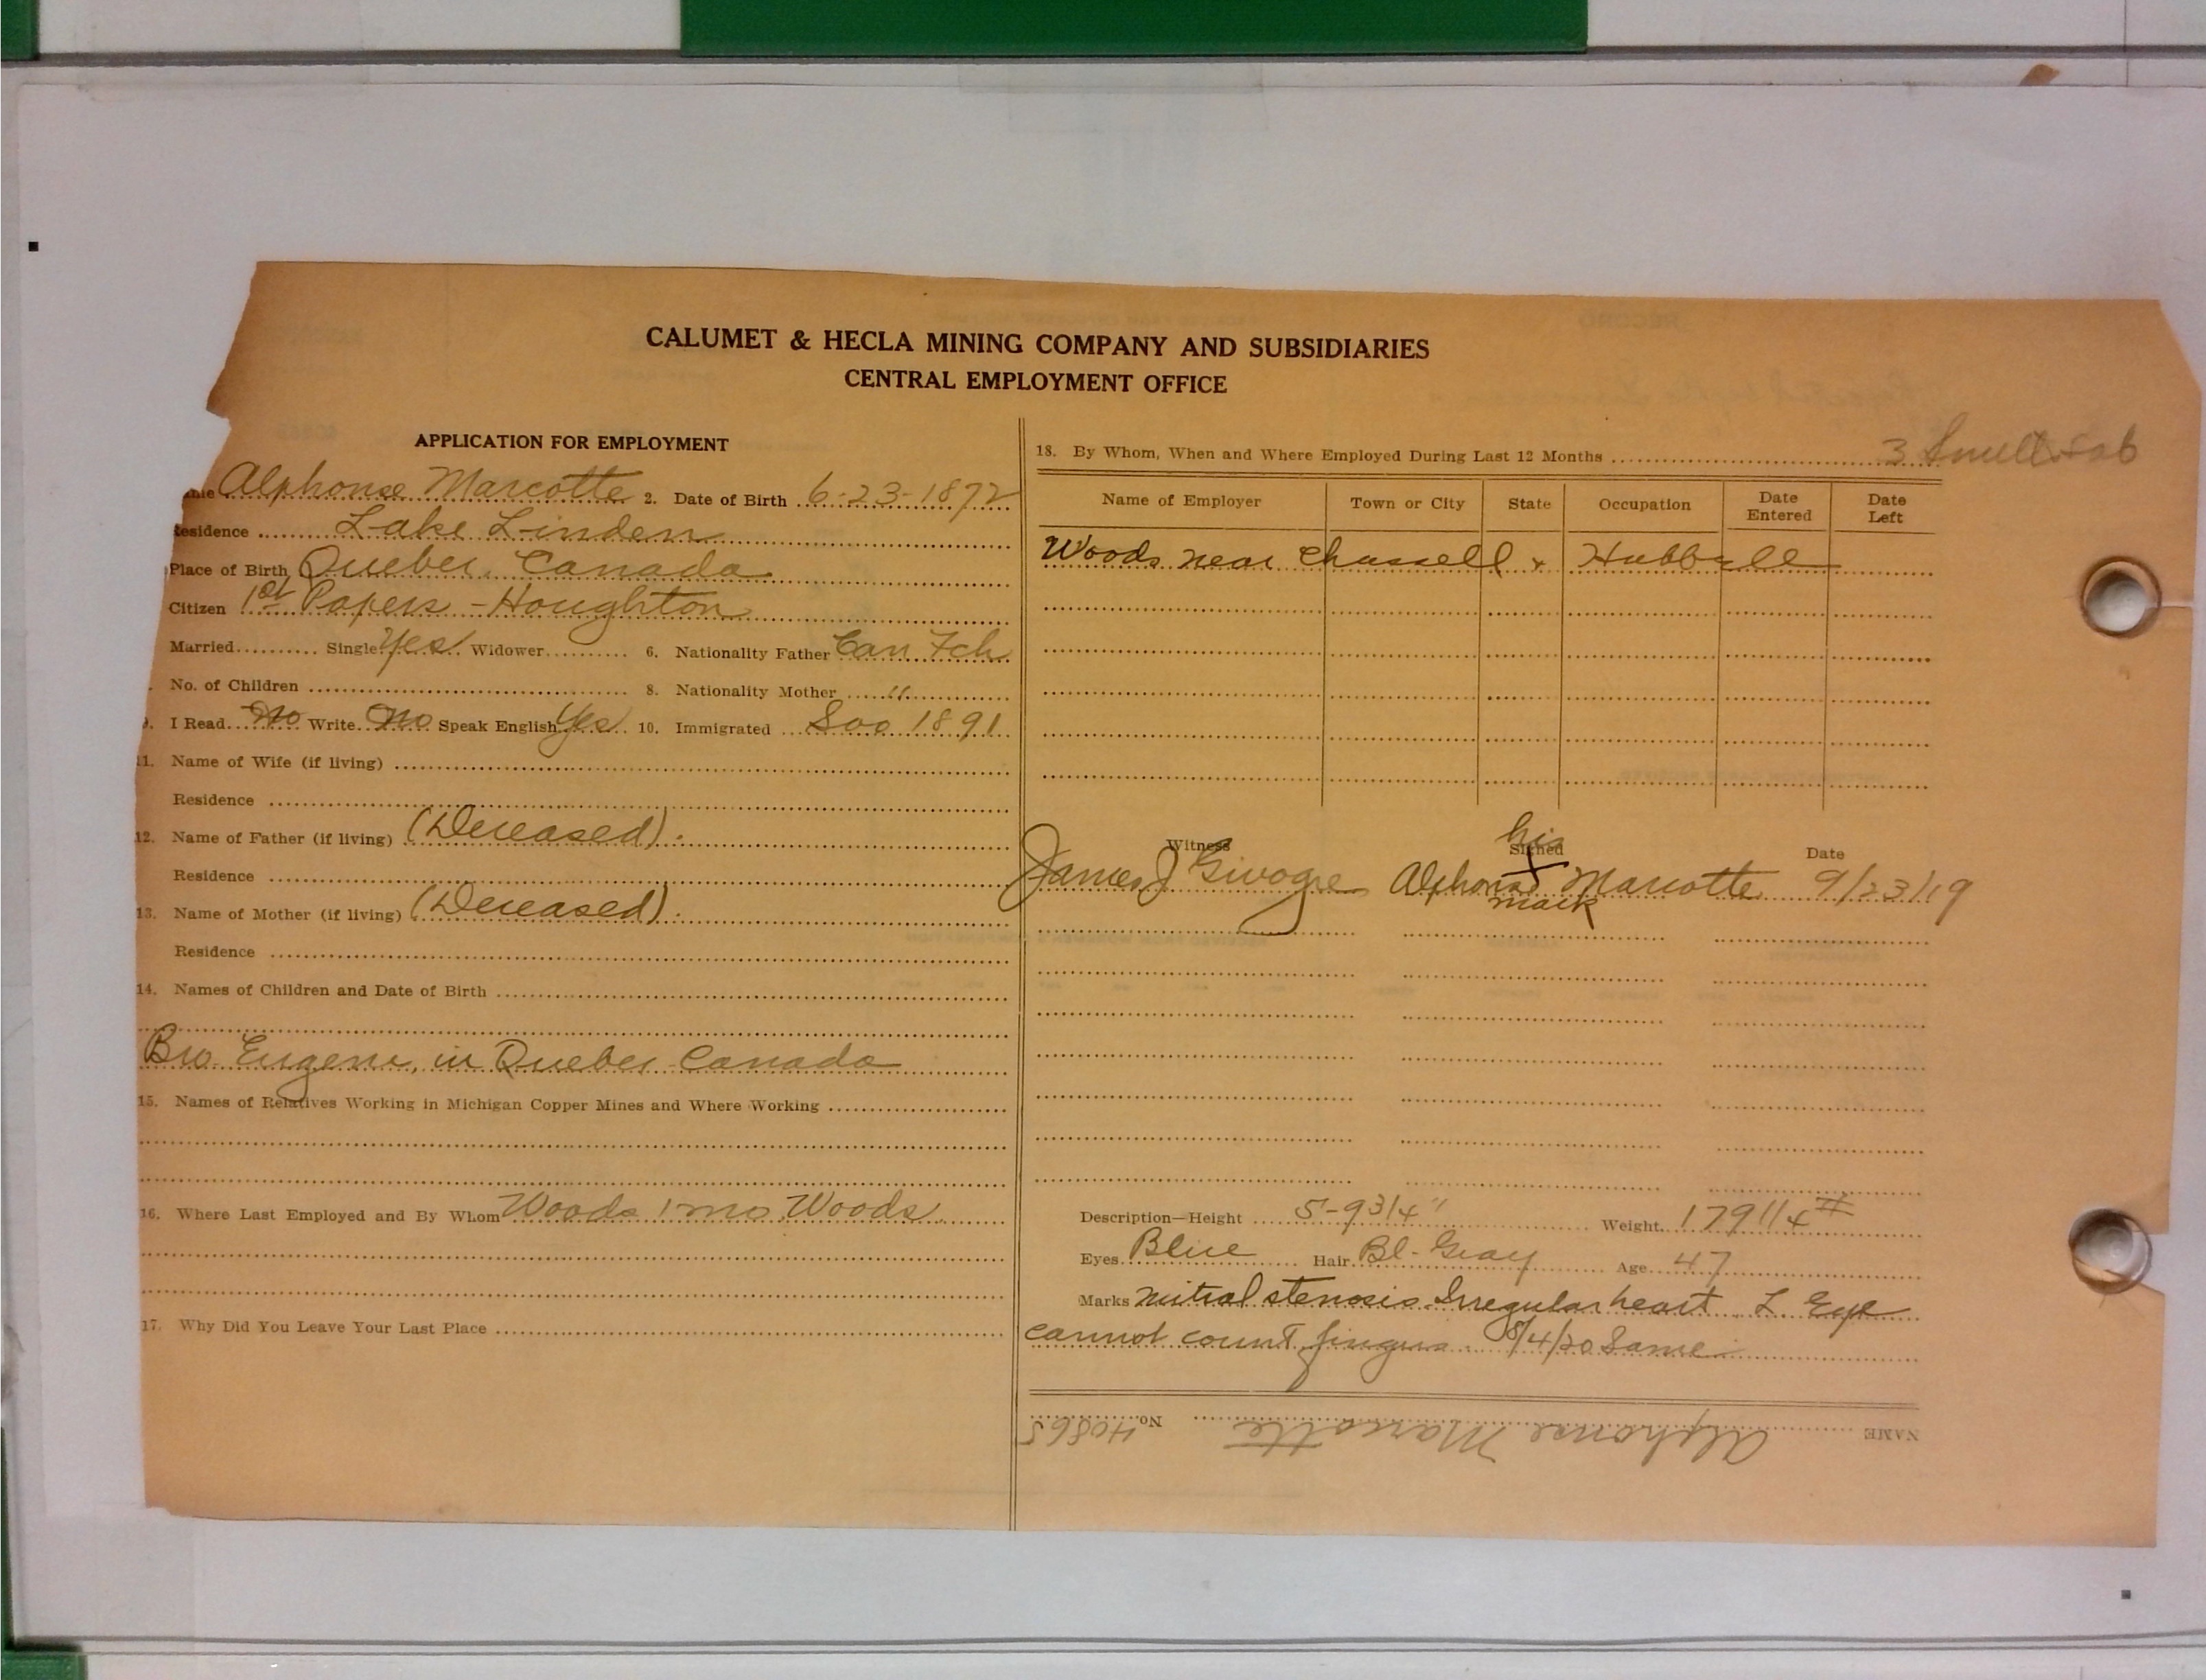 CALUMET & HECLA MINING COMPANY AND SUBSIDIARIES
CENTRAL EMPLOYMENT OFFICE
APPLICATION FOR EMPLOYMENT
Alphonse Marcotte 2. Date of Birth 6-23-1872
Residence Lake Linden
Place of Birth Quebec, Canada
Citizen 1st Papers - Houghton
Married Single Yes Widower 6. Nationality Father Can Fch
No. of Children 8. Nationality Mother "
9. I Read No Write No Speak English Yes 10. Immigrated Soo 1891
11. Name of Wife (if living)
Residence
12. Name of Father (if living) (Deceased).
Residence
13. Name of Mother (if living) (Deceased).
Residence
14. Names of Children and Date of Birth
Bro. Eugene, in Quebec Canada
15. Names of Relatives Working in Michigan Copper Mines and Where Working
16. Where Last Employed and By Whom Woods 1 mo Woods
17. Why Did You Leave Your Last Place
18. By Whom, When and Where Employed During Last 12 Months 3
Name of Employer Town or City State Occupation Date Entered Date Left
Woods near Chassell &
Witness his Signed Date
James J Alphonse X Marcotte 9/23/19
mark
Description—Height 5-9 3/4" Weight 179 1/4 #
Eyes Blue Hair Bl-Gray Age 47
Marks Mitral stenosis. Irregular heart L. Eye
cannot count fingers. 8/4/20 Same
NAME Alphonse Marcotte No. 40865